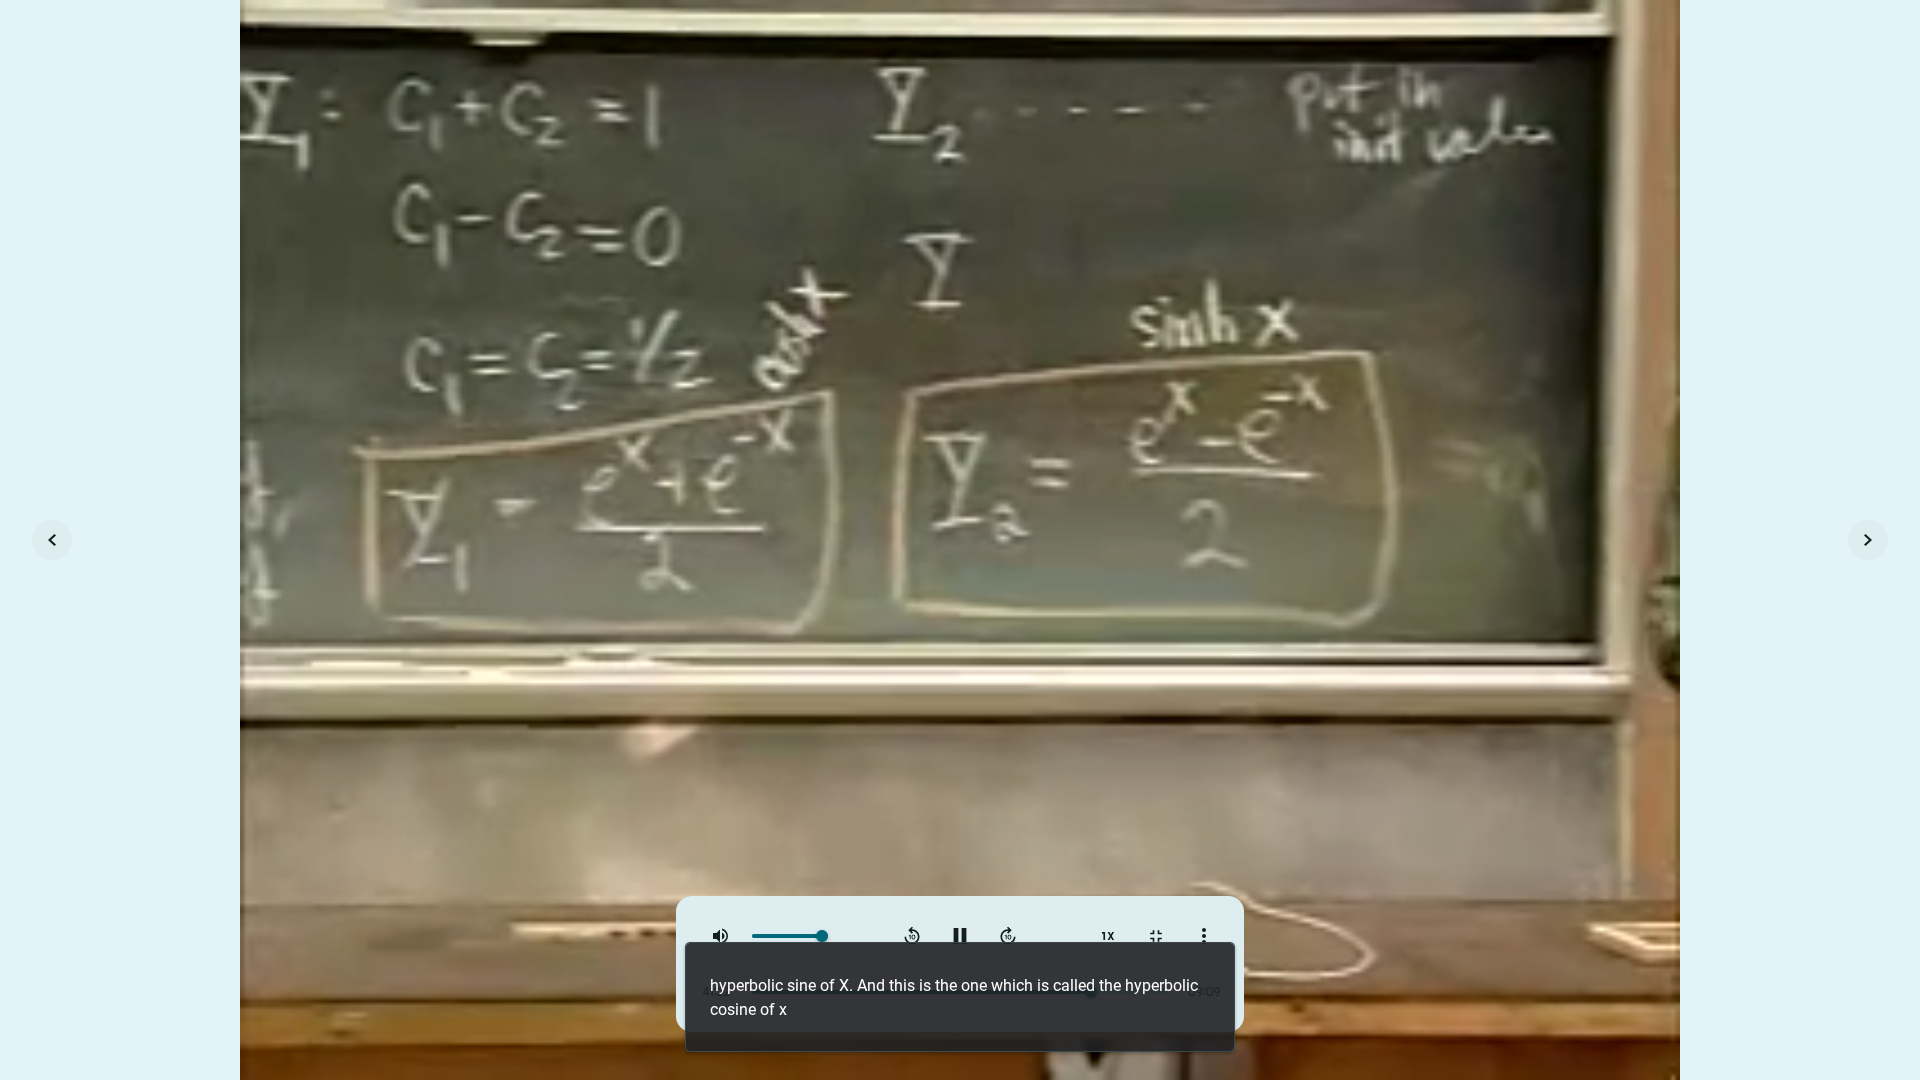 Y₁: C₁ + C₂ = 1
C₁ - C₂ = 0
C₁ = C₂ = 1/2
cosh x
Y₁ = (e^x + e^-x)/2
Y₂ - - - - -
put in
init values
Y
sinh x
Y₂ = (e^x - e^-x)/2
1X
hyperbolic sine of X. And this is the one which is called the hyperbolic
cosine of x